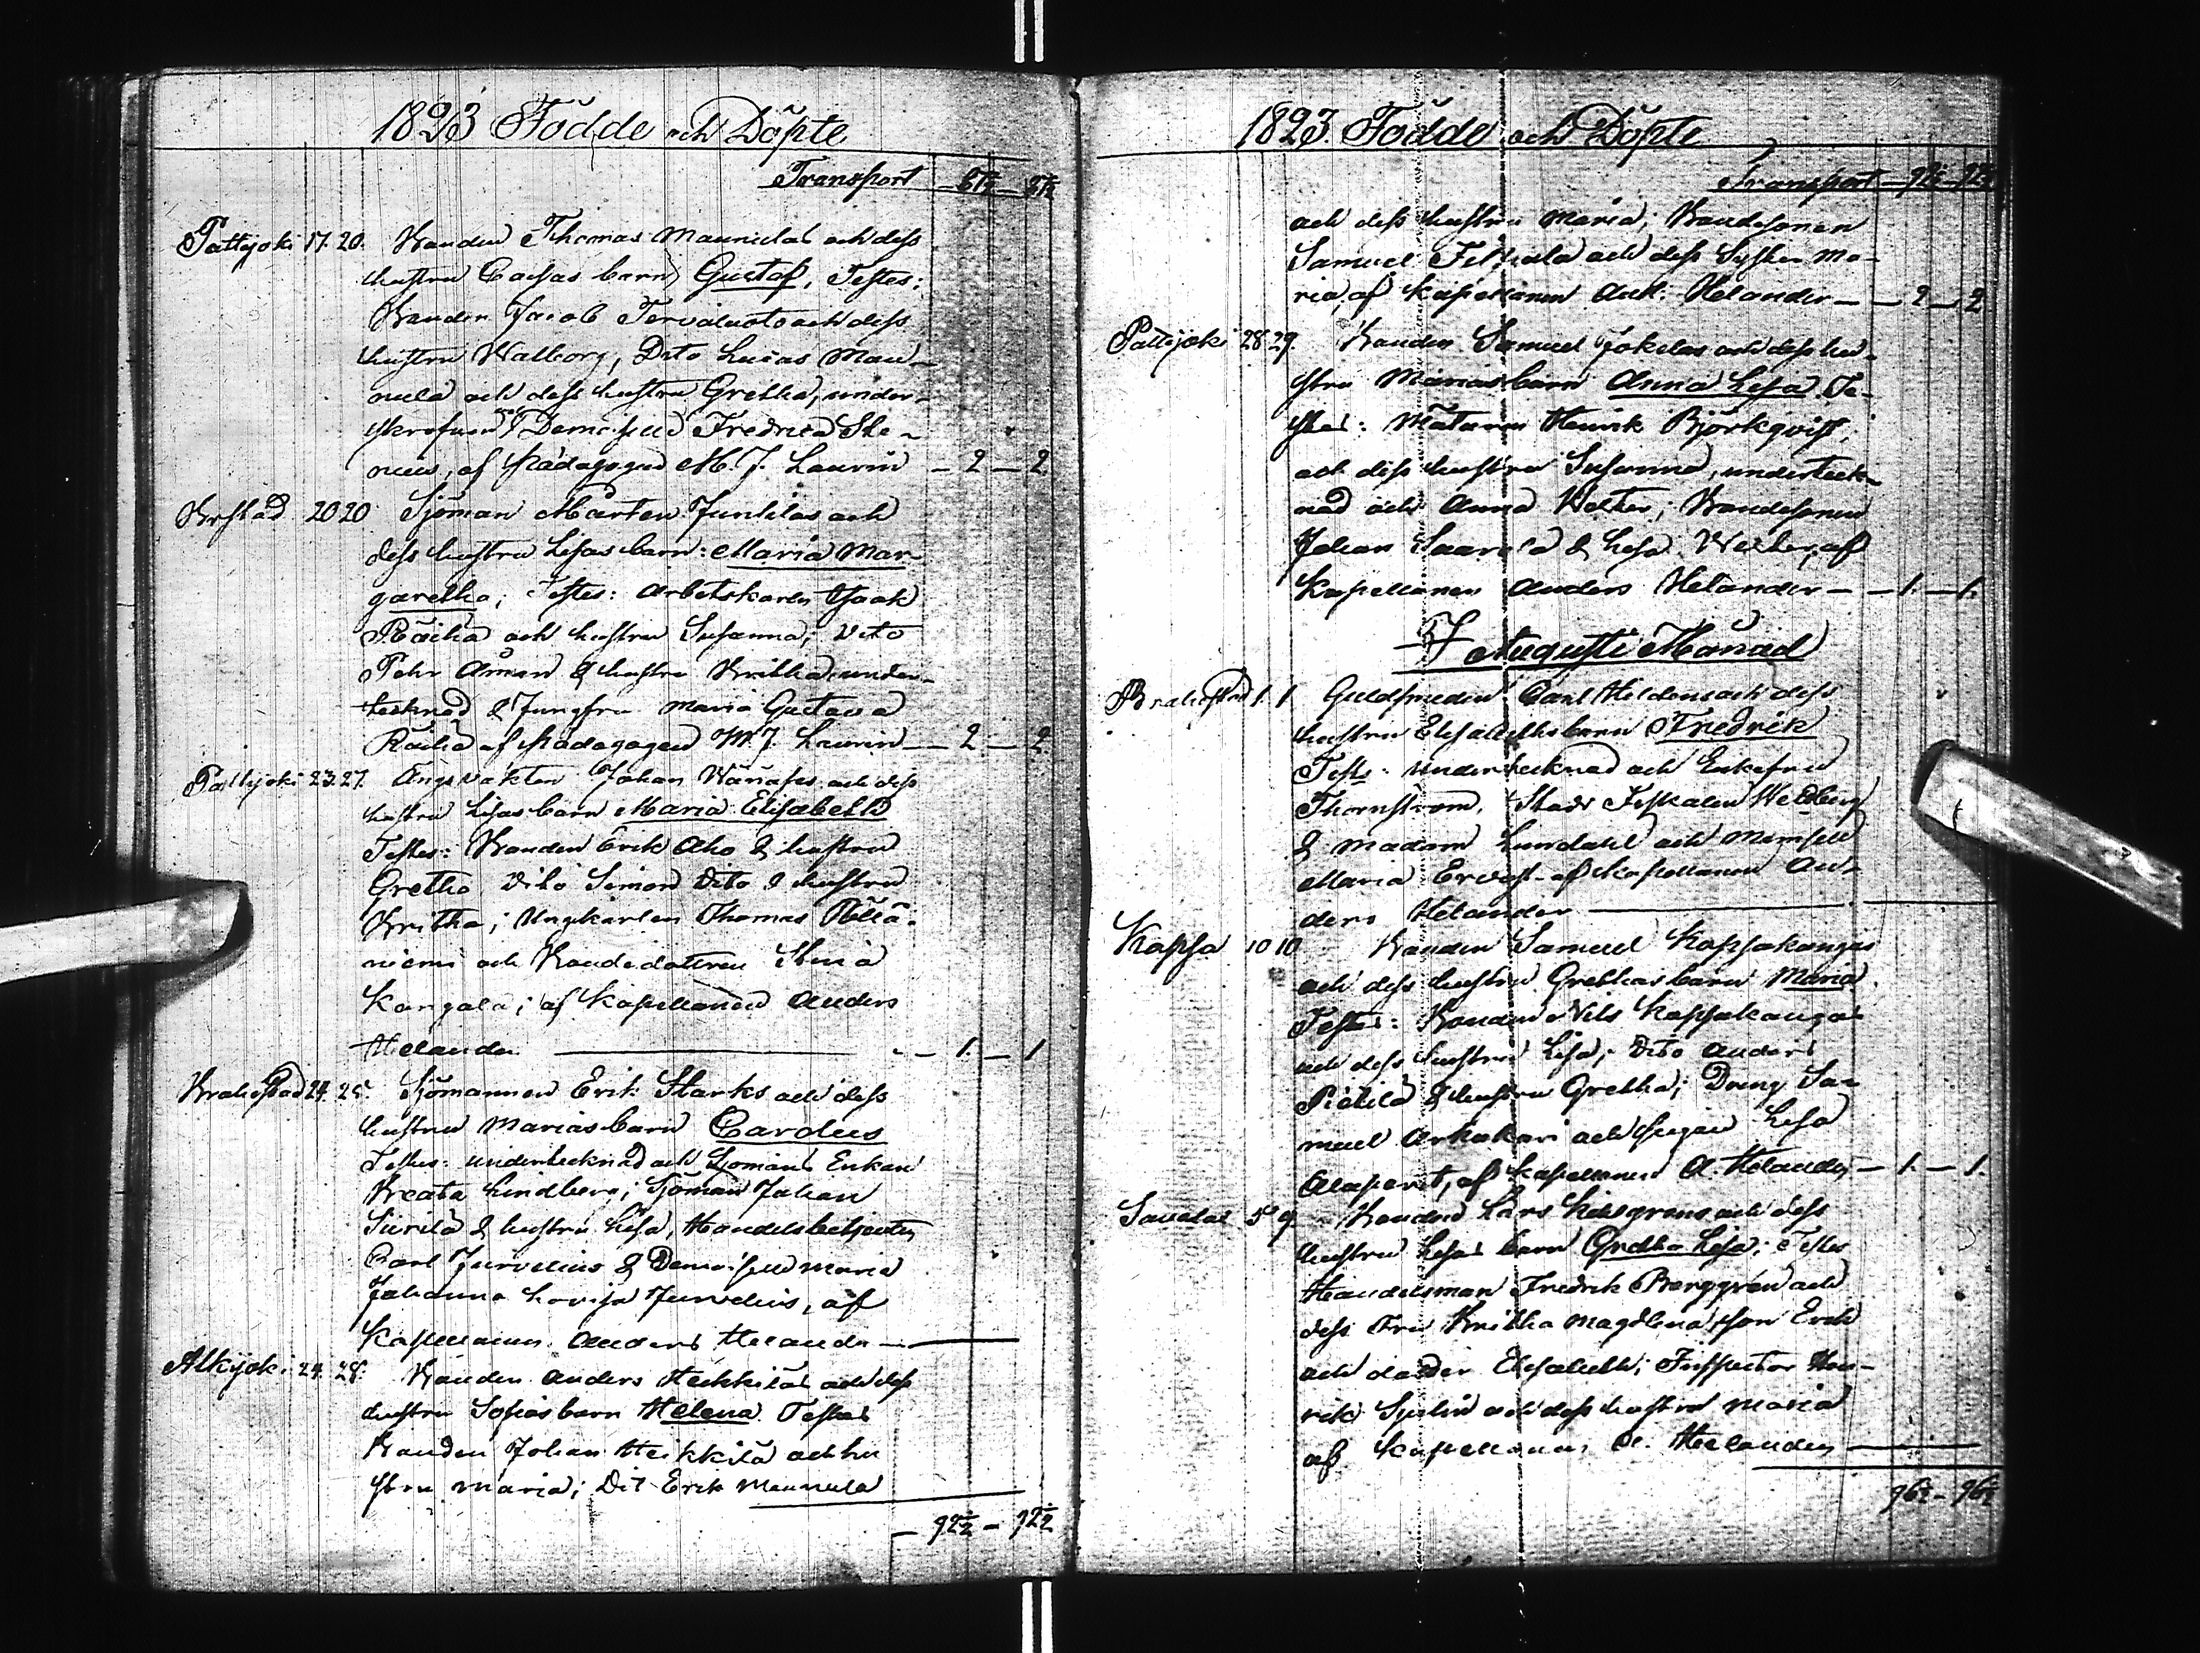 1823 Födde och Döpte
Transport
Pattijoki 17. 20. Bonden Thomas Mannilas och dess
hustru Cajsas barn Gustaf, Testes:
Bonden Jacob Tervaluoto och dess
hustru Walborg, Dito Lucas Man-
nela och dess hustru Gretha, under-
skrefven Demoiselle Fredrica Ste-
nius, af Pädagogen M. J. Laurin – 2 – 2
Brstad 20 20 Sjöman Mårten Juntilas och
dess hustru Lisas barn: Maria Mar-
garetha; Testes: Arbetskarlen Isaak
Räihä och hustru Susanna; Dito
Pehr Åman & hustru Britha, under-
tecknad & Jungfru Maria Gustava
Räihä af Pädagogen M. J. Laurin – 2 – 2
Pattijoki 23. 27. Ängsvakten Johan and dess
hustru Lisas barn Maria Elisabeth
Testes: Bonden Erik Aho & hustru
Gretha Dito Simon Dito & hustru
Britha; Ungkarlen Thomas Pöllä-
niemi och Bondedottren Stina
Kangala; af Kapellanen Anders
Helander – 1. – 1
Brahestad 24. 25. Sjömannen Erik Starks och dess
hustru Marias barn Carolus
Testes: undertecknad och Sjömans Enkan
Breata Lindberg; Sjöman Johan
Siirilä & hustru Lisa, Handelsbetjenten
Carl Jurvelius & Demoiselle Maria
Johanna Lovisa Jurvelius, af
Kapellanen Anders Helander –
Olkijoki 24. 28. Bonden Anders Heikkiläs och dess
hustru Sofias barn Helena. Testes
Bonden Johan Heikkilä och hu
stru Maria; Dit Erik Mannela
– 92½ – 92½
1823. Födde och Döpte
Transport – 92½ – 92½
och dess hustru Maria; Bondesonen
Samuel och dess Syster Ma-
ria, af Kapellanen And: Helander – – 2 – 2
Pattijoki 28 29. Bonden Samuel Jokelas och dess hu-
stru Marias barn Anna Lisa. Te-
stes: Mätaren Henrik Björkqvist,
och dess hustru Susanna, underteck-
nad och Anna Welther; Bondesonen
Johan Saarela & Lisa Welther, af
Kapellanen Anders Helander – – 1. – 1.
I Augusti Månad
Brahestad 1. 1 Guldsmeden Carl Heldens och dess
hustru Elisabeths barn Fredrik
Testes: undertecknad och Enkefru
Thornström, Stads Fiskalen Wedberg
& Madam Lundahl och Mamsell
Maria Ervast af Kapellanen An-
ders Helander
Kopsa 10 10 Bonden Samuel Kopsakangas
och dess hustru Grethas barn Maria.
Testes: Bonden Nils Kopsakangas
och dess hustru Lisa; Dito Anders
Pietilä & hustru Gretha; Dräng Sa-
muel Arkukari och Pigan Lisa
Alaperet, af Kapellanen A. Helander – 1. – 1.
Savolax 5 9. Bonden Lars och dess
hustru Lisas barn Gretha Lisa; Testes
Handelsman Fredrik Berggrén och
dess Fru Britha Magdlena, son Erik
och dotter Elisabeth; Inspector Hen-
rik Sjulin och dess hustru Maria
af Kapellanen A. Helander
96½ – 96½